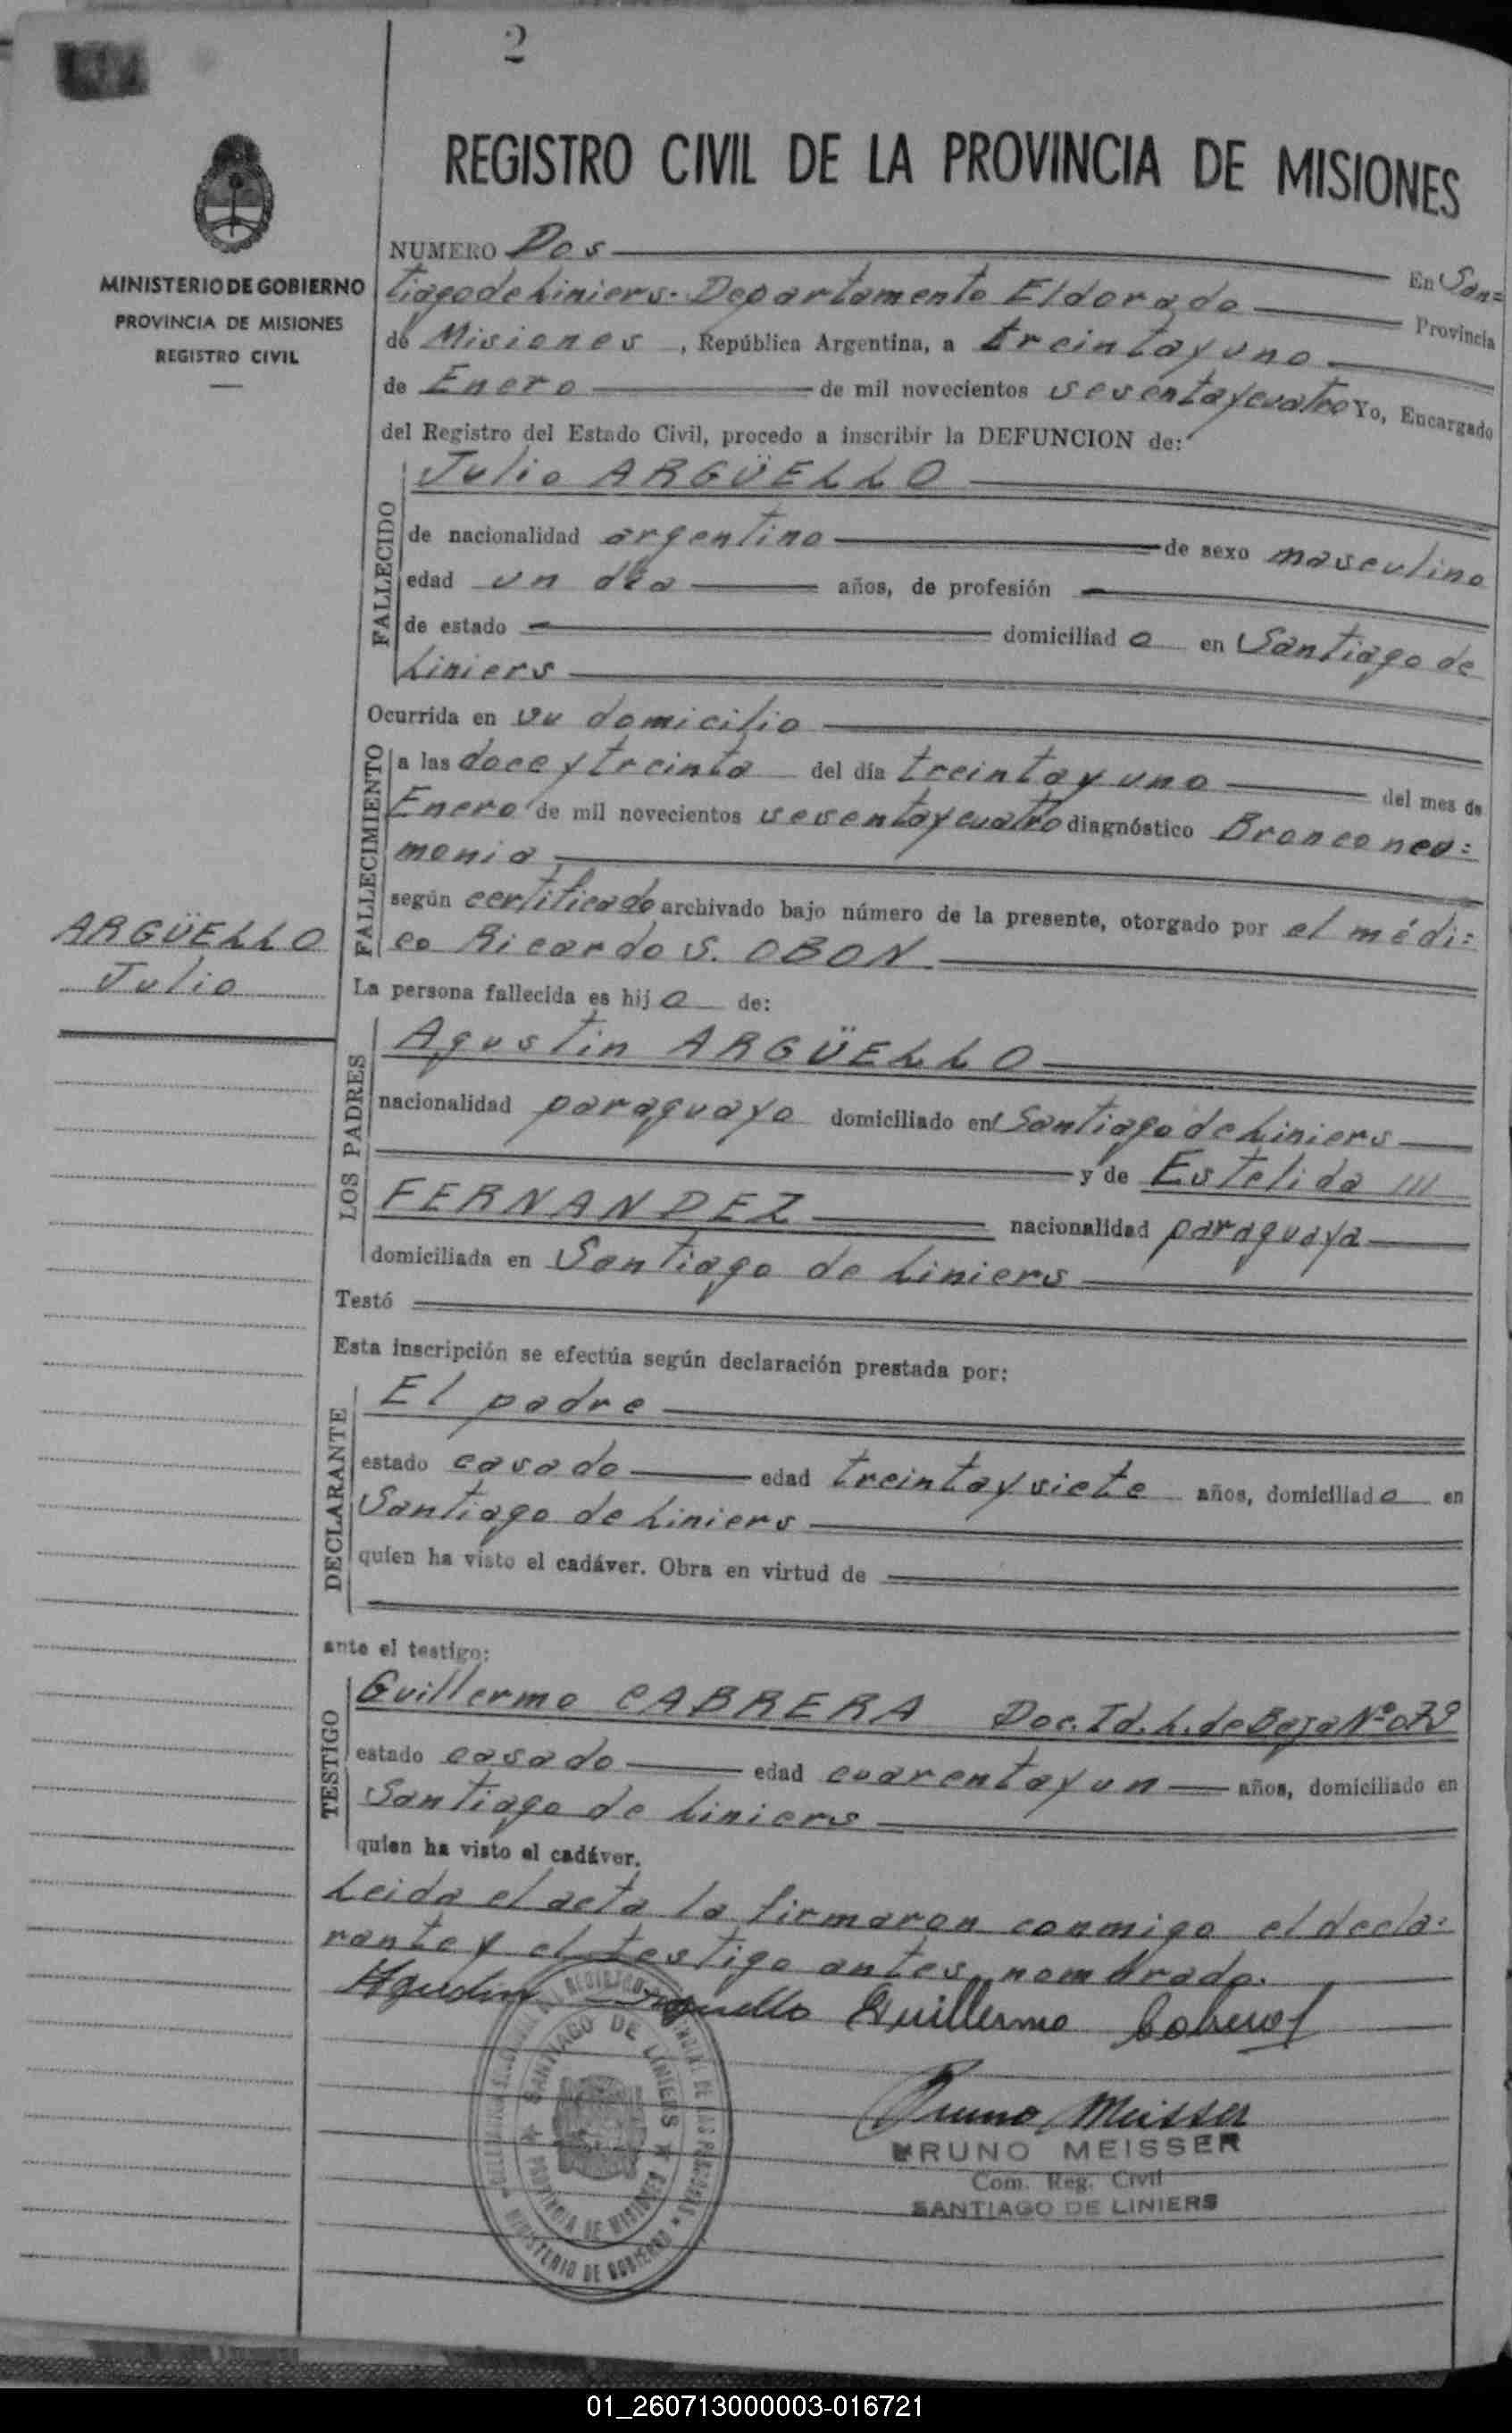 2
REGISTRO CIVIL DE LA PROVINCIA DE MISIONES
MINISTERIO DE GOBIERNO
PROVINCIA DE MISIONES
REGISTRO CIVIL
NUMERO Dos En San=
tiago de Liniers. Departamento Eldorado Provincia
de Misiones, República Argentina, a treinta y uno
de Enero de mil novecientos sesenta y cuatro Yo, Encargado
del Registro del Estado Civil, procedo a inscribir la DEFUNCION de:
FALLECIDO
Julio ARGÜELLO
de nacionalidad argentino de sexo masculino
edad un día años, de profesión
de estado domiciliado en Santiago de
Liniers
Ocurrida en su domicilio
FALLECIMIENTO
a las doce y treinta del día treinta y uno del mes de
Enero de mil novecientos sesenta y cuatro diagnóstico Bronconeu=
monia
según certificado archivado bajo número de la presente, otorgado por el médi=
co Ricardo S. OBON
ARGÜELLO
Julio
La persona fallecida es hijo de:
LOS PADRES
Agustin ARGÜELLO
nacionalidad paraguayo domiciliado en Santiago de Liniers
y de Estelida
FERNANDEZ nacionalidad paraguaya
domiciliada en Santiago de Liniers
Testó
Esta inscripción se efectúa según declaración prestada por:
DECLARANTE
El padre
estado casado edad treinta y siete años, domiciliado en
Santiago de Liniers
quien ha visto el cadáver. Obra en virtud de
ante el testigo:
TESTIGO
Guillermo CABRERA Doc. Id. L. de Baja Nº
estado casado edad cuarenta y un años, domiciliado en
Santiago de Liniers
quien ha visto el cadáver.
Leida el acta la firmaron conmigo el decla=
rante y el testigo antes nombrado.
Agustin Arguello Guillermo Cabrera
SANTIAGO DE LINIERS
PROVINCIA DE MISIONES
MINISTERIO DE GOBIERNO
Bruno Meisser
BRUNO MEISSER
Com. Reg. Civil
SANTIAGO DE LINIERS
01_260713000003-016721